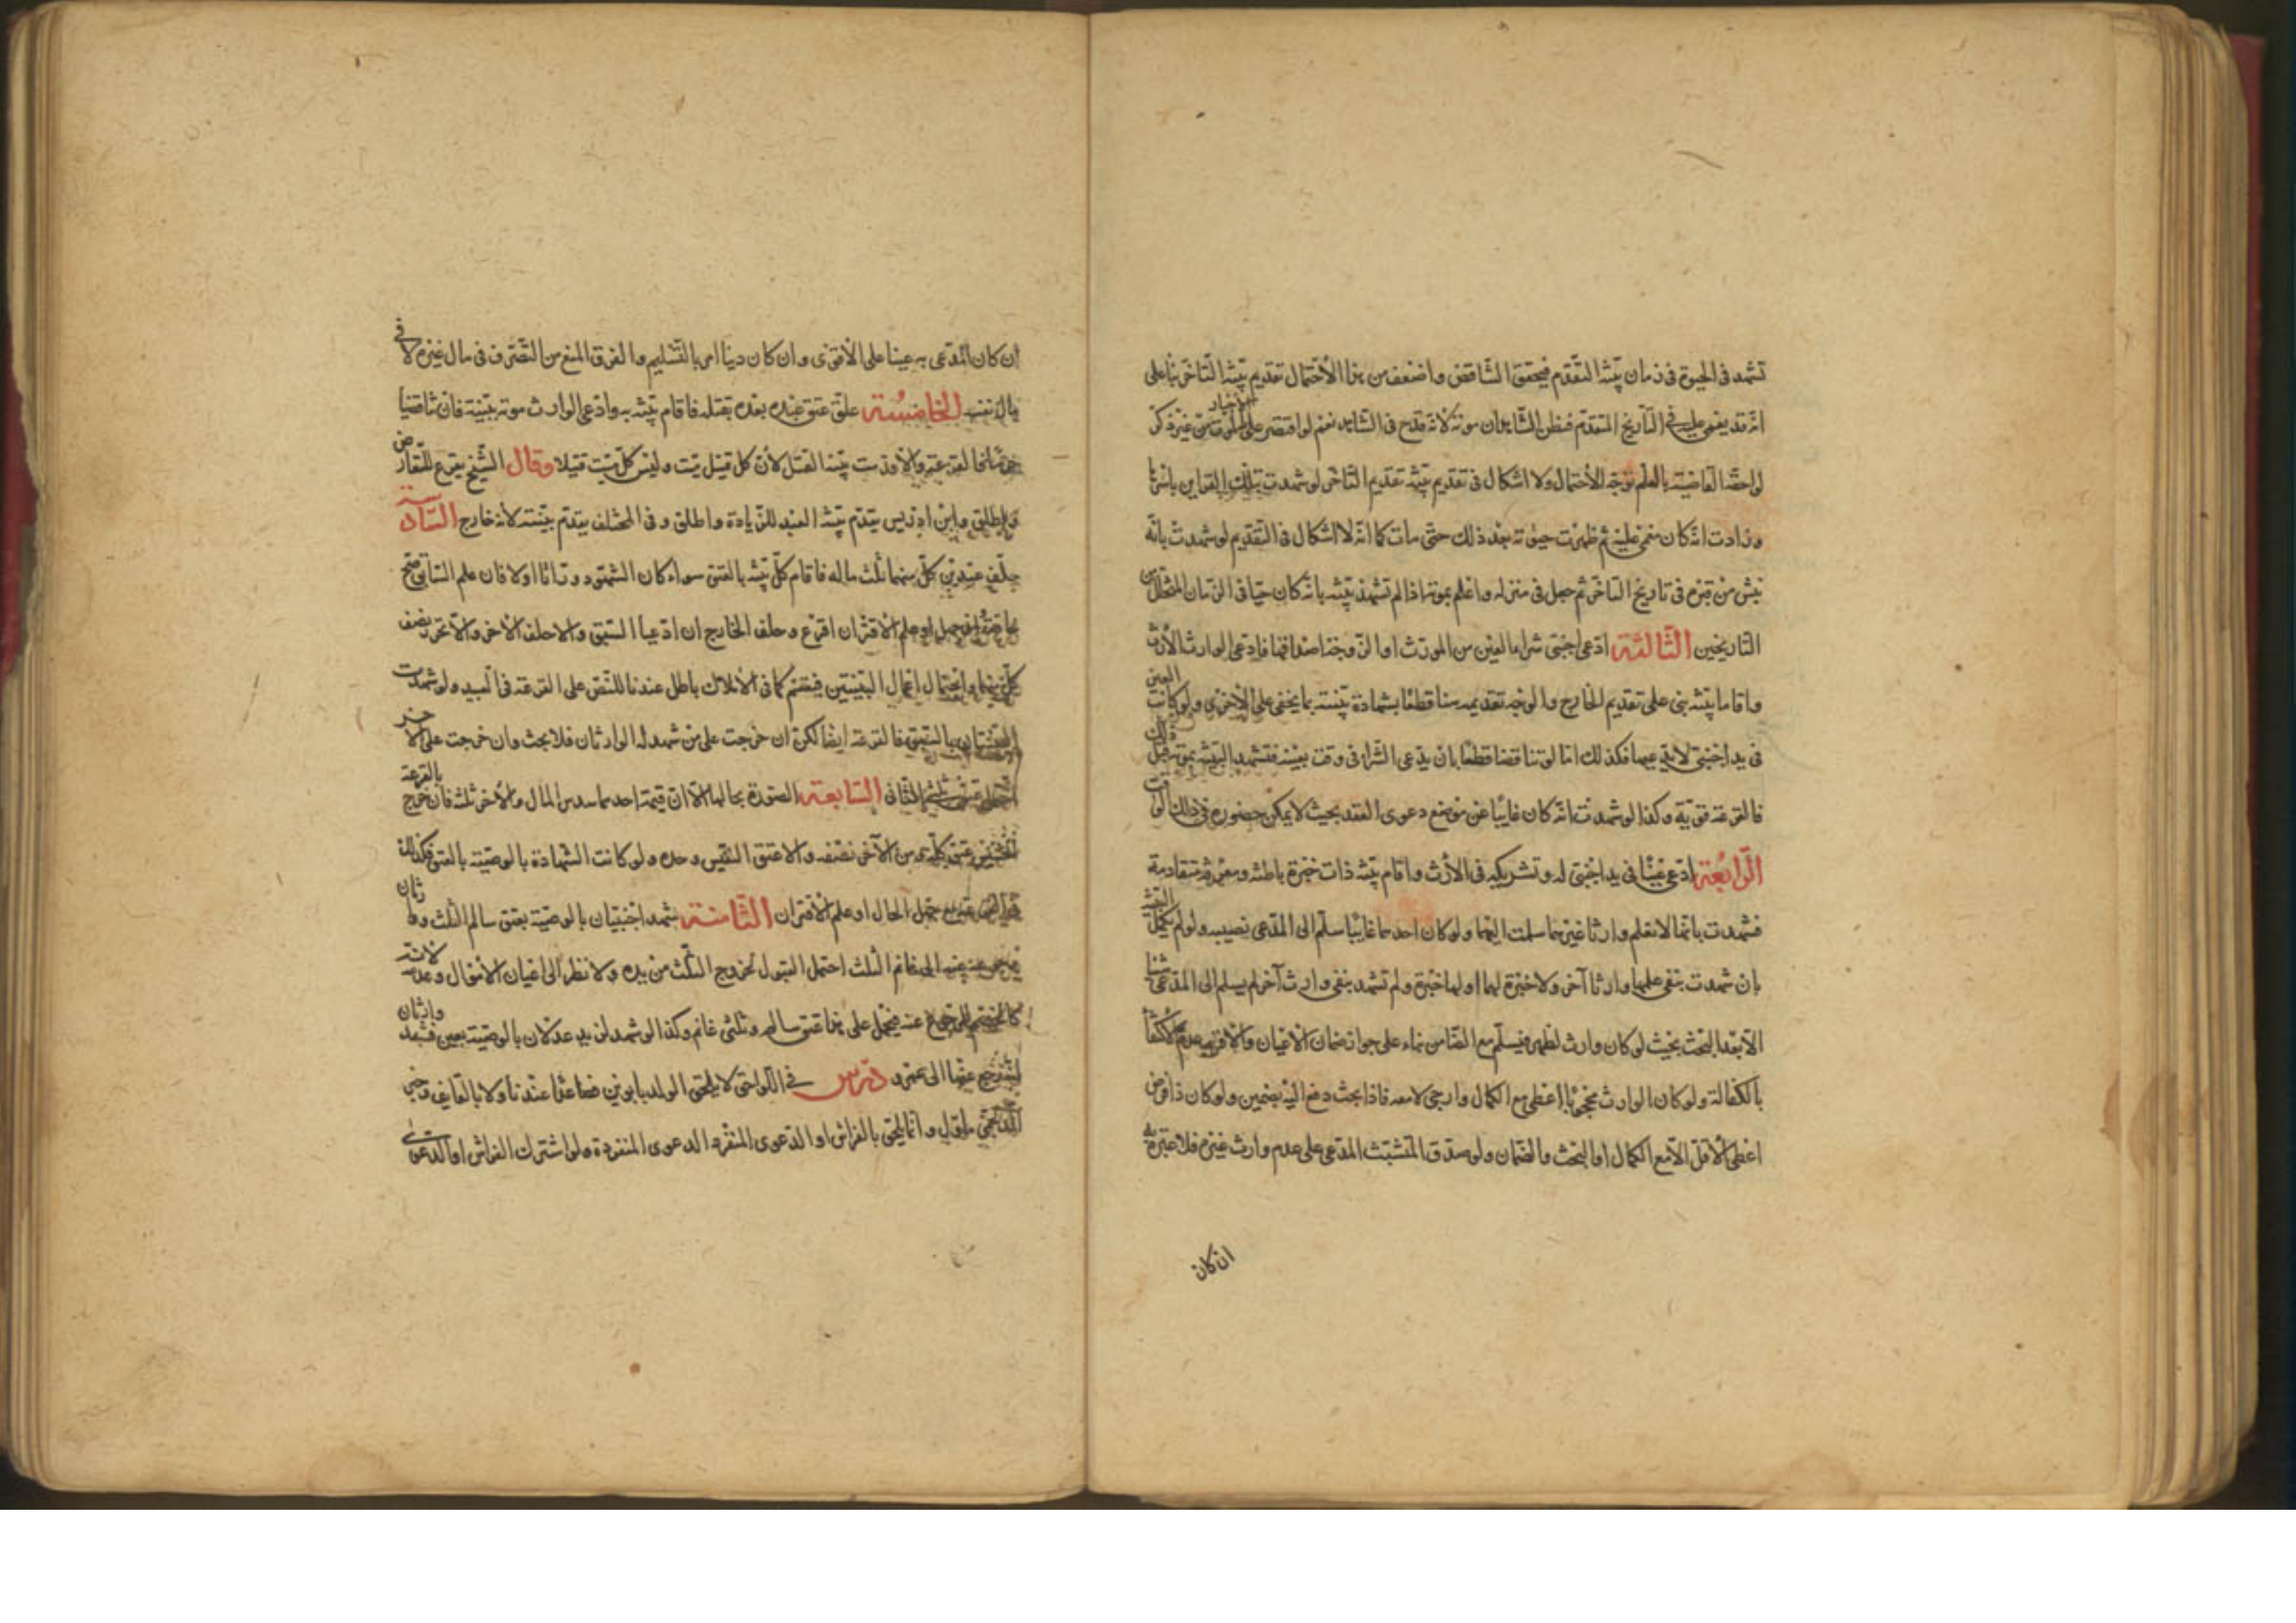 تشهد في الحيوة في زمان بيّنة التقدّم فيحقق التناقض واضعف من هذا الاحتمال تقديم بيّنة التاخر بناء على
انّه قد يغمى عليه في التاريخ المتقدّم فظن الشاهدان موته لانّه قدح في الشاهد نعم لو اقتصر على الاخبار بالموت من غير ذكر
لواحقه القاضية بالعلم توجّه الاحتمال ولا اشكال في تقديم بيّنة تقديم التاخر لو شهدت بتلك القراين باسرها
وزادت انّه كان مغمى عليه ثم ظهرت حيوته بعد ذلك حتّى مات كما انّه لا اشكال في التقديم لو شهدت بانّه
نبش من قبره في تاريخ التاخر ثم جعل في منزله واعلم بموته اذا لم تشهد بيّنته بانّه كان حيّا في الزمان المتخلّل بين
التاريخين الثالثة ادّعى اجنبيّ شراء العين من المورّث او الزوجة اصداقها فادعى الوارث الارث
واقاما بيّنة بنى على تقديم الخارج والوجه تقديمه هنا قطعا بشهادة بيّنته بما يخفى على الاخرى ولو كانت العين
في يد اجنبيّ لا يدّعيها فكذلك امّا لو تناقضا قطعا بان يدّعى الشراء في وقت بعينه فتشهد البيّنة بموته قبل ذلك
فالقرعة قويّة وكذا لو شهدت انّه كان غايبا عن موضع دعوى العقد بحيث لا يمكن حضوره في ذلك الوقت
الرّابعة ادّعى عينا في يد اجنبيّ له وتشريكه في الارث واقام بيّنة ذات خبرة باطنة ومعرفة متقادمة
فشهدت بانّها لا تعلم وارثا غيرهما سلمت اليهما ولو كان احدهما غايبا سلّم الى المدّعي نصيبه ولو لم تكمل البيّنة
بان شهدت بنفي علمها وارثا آخر ولا خبرة لها او لها خبرة ولم تشهد بنفي وارث آخر لم يسلم الى المدّعي شيئا
الّا بعد البحث بحيث لو كان وارث لظهر فيسلّم مع الضامن بناء على جواز ضمان الاعيان والاقرب عدم الاكتفاء
بالكفالة ولو كان الوارث محجوبا اعطى مع الكمال وارجئ لا معه فاذا بحث دفع اليه بضمين ولو كان ذا فرض
اعطى الاقل الّا مع الكمال او البحث والضمان ولو صدق المتشبّث المدّعي على عدم وارث غيره فلا عبرة به
ان كان
ان كان المدّعى به عينا على الاقوى وان كان دينا امر بالتسليم والفرق المنع من التصرف في مال غيره لا في
مال نفسه الخامسة علّق عتق عبده بعده بقتله فاقام بيّنة به وادّعى الوارث موته ببيّنة فان تناقضتا
فالقرعة والّا قدّمت بيّنة القتل لأن كل قتيل ميّت وليس كلّ ميّت قتيلا وقال الشيخ يقرع للتعارض
واطلق وابن ادريس يقدّم بيّنة العبد للزيادة واطلق وفي المختلف يقدّم بيّنته لانّه خارج السادسة
خلّف عبدين كلّ منهما ثلث ماله فاقام كلّ بيّنة بالعتق سواء كان الشهود ورّاثا اولا فان علم السابق صحّ
خاصّة وان جهل او علم الاقتران اقرع وحلف الخارج ان ادّعيا السبق والا حلف الاخر والا تحرر نصف
كلّ منهما واحتمال اعمال البيّنتين فيقسم كما في الاملاك باطل عندنا للنصّ على القرعة في العبيد ولو شهدت
البيّنتان بالسبق فالقرعة ايضا لكن ان خرجت على من شهد له الوارثان فلا بحث وان خرجت على الاخر
الثاني السابعة الصورة بحالها الّا انّ قيمة احدهما سدس المال والاخر ثلثه فان خرج بالقرعة
من الآخر نصفه والا عتق النفيس وحده ولو كانت الشهادة بالوصيّة بالعتق فكذلك
جهل الحال او علم الاقتران الثّامنة شهد اجنبيّان بالوصيّة بعتق سالم الثلث ووارثان
الى غانم الثلث احتمل القبول لخروج الثلث من يده ولا نظر الى اعيان الاموال وعدمه لانّه
كالمتّهم للرجوع عنه فيحمل على هذا عتق سالم وثلثى غانم وكذا لو شهد لزيد عدلان بالوصيّة بعين فشهد وارثان
بالرجوع عنها الى عمرو درس في اللواحق لا يلحق الولد بابوين فصاعدا عندنا ولا بالقايف وخبر
المدلجى مأوّل وانّما يلحق بالفراش او الدعوى المنفرد الدعوى المنفردة ولو اشترك الفراش او الدعوى